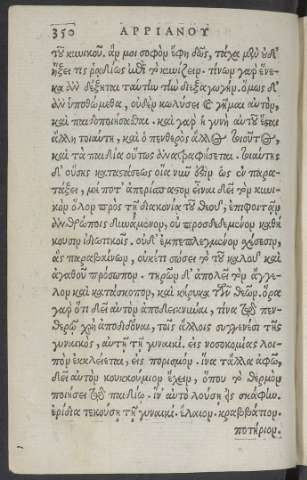 350 ΑΡΡΙΑΝΟΥ
τοῦ κυνικοῦ. ἄν μοι σοφῶν ἔφη δῷς, τάχα μὲν οὐδ'
ἥξει τις ῥᾳδίως ἐπὶ τὸ κυνίζειν. τίνων γὰρ ἕνε-
κα ἂν δέξηται ταύτην τὴν διεξαγωγήν. ὅμως δ'
ἂν ὑποθώμεθα, οὐδὲν κωλύσει καὶ γῆμαι αὐτὸν,
καὶ παιδοποιήσασθαι. καὶ γὰρ ἡ γυνὴ αὐτοῦ ἔσται
ἄλλη τοιαύτη, καὶ ὁ πενθερὸς ἄλλος τοιοῦτος,
καὶ τὰ παιδία οὕτως ἀνατραφήσεται. τοιαύτης
δ' οὔσης καταστάσεως οἵα νῦν ἐστιν ὡς ἐν παρα-
τάξει, μή ποτ' ἀπερίσπαστον εἶναι δεῖ τὸν κυνι-
κὸν ὅλον πρὸς τῇ διακονίᾳ τοῦ θεοῦ, ἐπιφοιτᾷν
ἀνθρώποις δυνάμενον, οὐ προσδεδεμένον καθή
κουσιν ἰδιωτικοῖς. οὐδ' ἐμπεπλεγμένον σχέσεσιν,
ἃς παραβαίνων, οὐκέτι σώσει τὸ τοῦ καλοῦ καὶ
ἀγαθοῦ πρόσωπον. τηρῶν δ' ἀπολεῖ τὸν ἄγγε-
λον καὶ κατάσκοπον, καὶ κήρυκα τῶν θεῶν. ὅρα
γὰρ ὅτι δεῖ αὐτὸν ἀποδεικνύναι, τίνα τῷ πεν-
θερῷ χρὴ ἀποδιδόναι, τοῖς ἄλλοις συγγενέσι τῆς
γυναικὸς, αὐτῇ τῇ γυναικί. εἰς νοσοκομίας λοι-
πὸν ἐκκλείεται, εἰς πορισμόν. ἵνα τἄλλα ἀφῶ,
δεῖ αὐτὸν κουκκούμιον ἔχειν, ὅπου τὸ θερμὸν
ποιήσει τῷ παιδίῳ. ἵν' αὐτὸ λούσῃ εἰς σκάφην.
ἐρίδια τεκούσῃ τῇ γυναικί. ἔλαιον. κραββάτιον.
ποτήριον.